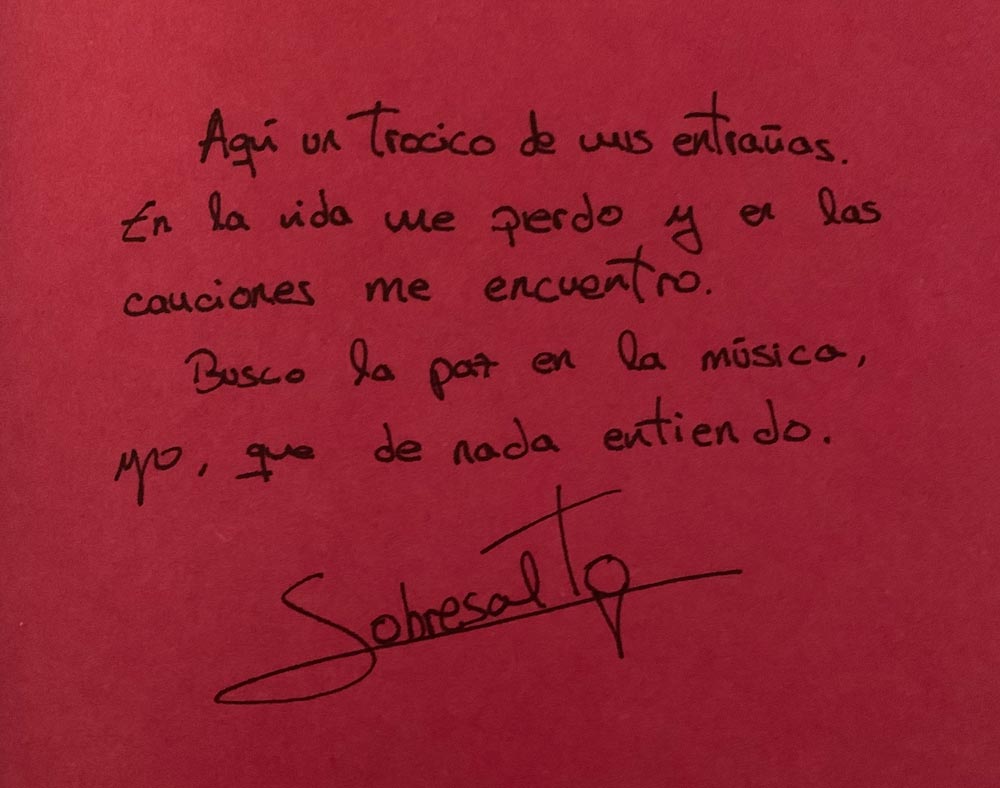 Aquí un trocico de mis entrañas.
En la vida me pierdo y en las
canciones me encuentro.
Busco la paz en la música,
yo, que de nada entiendo.
Sobresalto